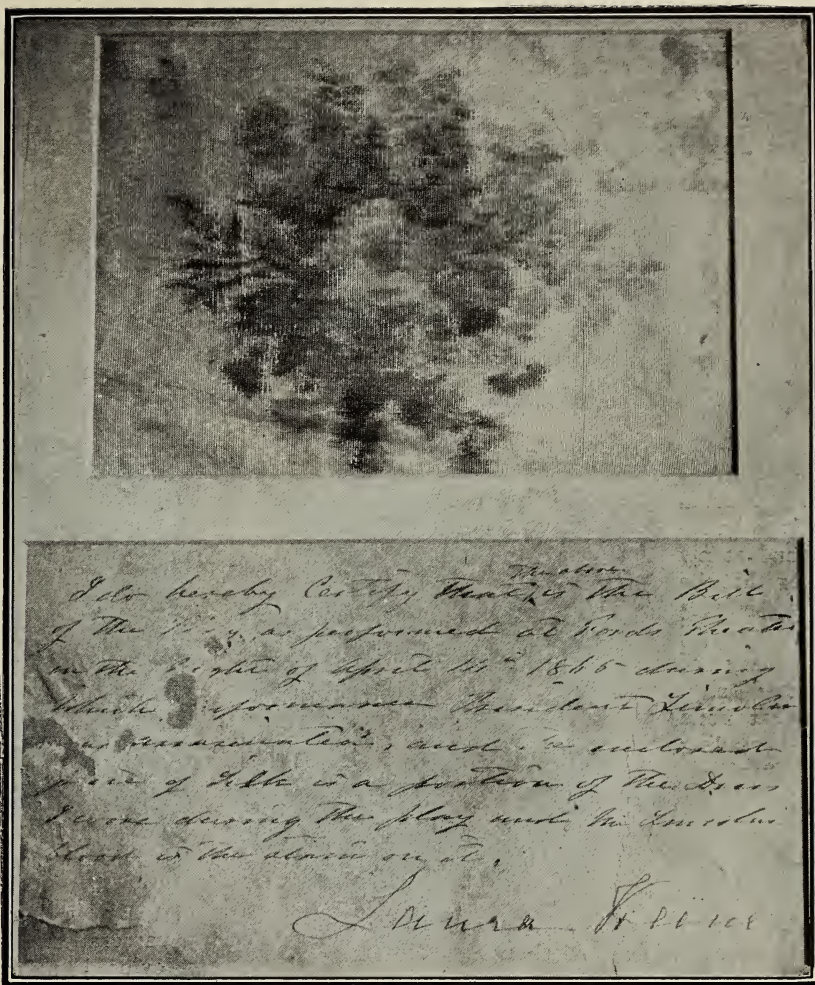 The above
I do hereby Certify that is the Bill
of the Play as performed at Fords Theatre
on the Night of April 14th 1865 during
which performance President Lincoln
was assassinated, and the enclosed
piece of Silk is a portion of the Dress
I wore during the play and Mr Lincolns
blood is the stain on it.
Laura Keene